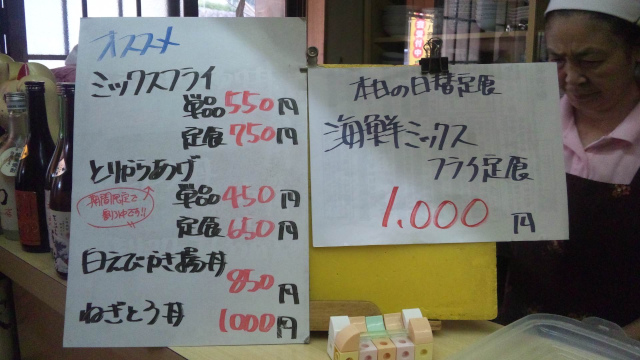 オススメ
ミックスフライ
単品 550円
定食 750円
とりからあげ
単品 450円
定食 650円
期間限定で
白えびかき揚丼
850円
ねぎとろ丼
1000円
本日の日替定食
海鮮ミックス
フライ定食
1,000円